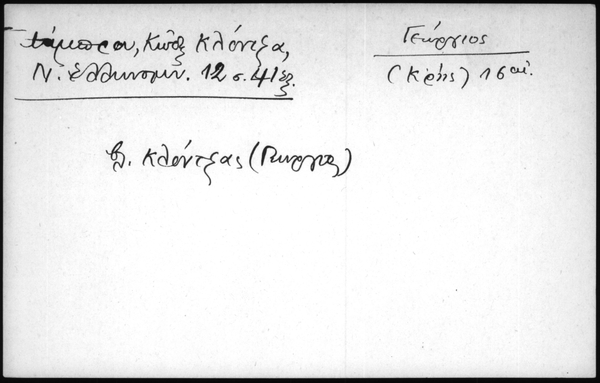 Λάμπρου, Κῶδξ Κλόντζα,
Ν. Ἑλληνομν. 12 σ. 41 ἑξ.
Γεώργιος
(Κρής) 16 αἰ.
βλ. Κλόντζας (Γεώργιος)